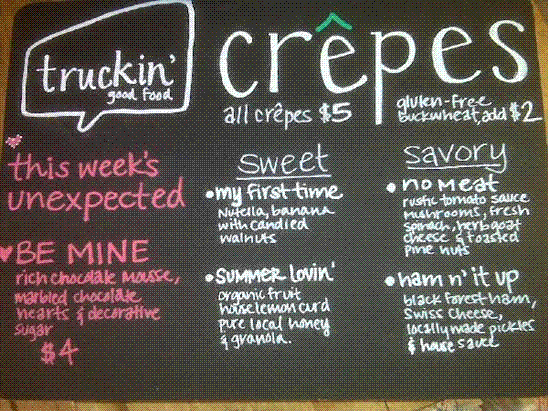 truckin'
good food
crêpes
all crêpes $5
gluten-free
buckwheat, add $2
this week's
unexpected
BE MINE
rich chocolate mousse,
marbled chocolate
hearts & decorative
sugar
$4
sweet
• my first time
Nutella, banana
with candied
walnuts
• SUMMER LOVIN'
organic fruit
house lemon curd
pure local honey
& granola.
savory
• no meat
rustic tomato sauce
mushrooms, fresh
spinach, herb goat
cheese & toasted
pine nuts
• ham n' it up
black forest ham,
Swiss cheese,
locally made pickles
& house sauce